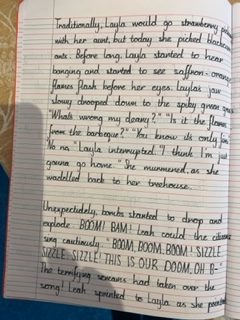 Traditionally, Layla would go strawberry
with her aunt, but today she picked
ants. Before long, Layla started to hear
banging and started to see saffron-orange
flames flash before her eyes. Layla's jaw
slowly drooped down to the spiky green grass
"What's wrong my deary?" "Is it the flames
from the barbeque?" "You know its only
"No na" Layla interrupted. "I think I'm just
gonna go home." She murmured, as she
waddled back to her treehouse.
Unexpectedely, bombs started to drop and
explode. BOOM! BAM! Leah could the citizens
sing cautiously. "BOOM, BOOM, BOOM! SIZZLE
SIZZLE SIZZLE! THIS IS OUR DOOM, OH B-"
The terrifying screams had taken over the
song! Leah sprinted to Layla as she